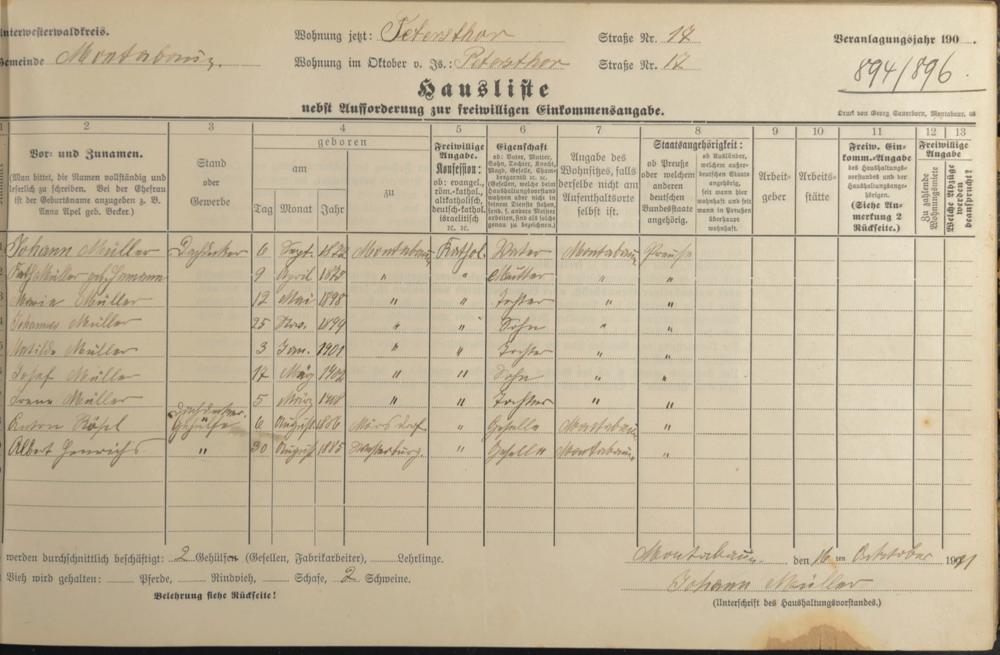 Unterwesterwaldkreis.
Wohnung jetzt: Petersthor Straße Nr. 17
Veranlagungsjahr 190 .
Gemeinde Montabaur.
Wohnung im Oktober v. Js.: Petersthor Straße Nr. 17
894/896.
Hausliste
nebst Aufforderung zur freiwilligen Einkommensangabe.
Druck von Georg Sauerborn, Montabaur.
1 2 3 4 5 6 7 8 9 10 11 12 13
Vor- und Zunamen.
(Man bittet, die Namen vollständig und
leserlich zu schreiben. Bei der Ehefrau
ist der Geburtsname anzugeben z. B.
Anna Apel geb. Becker.)
Stand
oder
Gewerbe
geboren
am
zu
Tag Monat Jahr
Freiwillige
Angabe.
Konfession:
ob: evangel.,
röm.-kathol.,
altkatholisch,
deutsch-kathol.
israelitisch
ec. ec.
Eigenschaft
ob: Vater, Mutter,
Sohn, Tochter, Knecht,
Magd, Geselle, Cham-
bregarnist u. ec.
(Gesellen, welche beim
Haushaltungsvorstand
wohnen aber nicht in
seinem Dienste stehen,
sond. f. andere Meister
arbeiten, sind als solche
genau zu bezeichnen.)
Angabe des
Wohnsitzes, falls
derselbe nicht am
Aufenthaltsorte
selbst ist.
Staatsangehörigkeit:
ob Preuße
oder welchem
anderen
deutschen
Bundesstaate
angehörig.
ob Ausländer,
welchem außer-
deutschen Staate
angehörig,
seit wann hier
wohnhaft und seit
wann in Preußen
überhaupt
wohnhaft.
Arbeit-
geber
Arbeits-
stätte
Freiw. Ein-
komm.-Angabe
des Haushaltungs-
vorstandes und der
Haushaltungsange-
hörigen.
(Siehe An-
merkung 2
Rückseite.)
Freiwillige
Angabe
Zu zahlende
Wohnungsmiete
Welche Abzüge
werden
beansprucht?
Johann Müller Dachdecker 6 Sept. Montabaur Kathol. Vater Montabaur Preuße
Müller geb. 9 April 1878 " " Mutter " "
Maria Müller 12 Mai 1898 " " Tochter " "
Johannes Müller 25 Nov. 1899 " " Sohn " "
Matilde Müller 3 Jan. 1901 " " Tochter " "
Josef Müller 17 Mai 1902 " " Sohn " "
Irene Müller 5 März " " Tochter " "
Anton Dachdecker Gehülfe 6 August 1886 " Geselle Montabaur "
Albert Henrichs " 30 August 1885 Westerburg. " Geselle Montabaur "
werden durchschnittlich beschäftigt: 2 Gehülfen (Gesellen, Fabrikarbeiter), Lehrlinge.
Montabaur, den 16 ten Oktober 19
Vieh wird gehalten: Pferde, Rindvieh, Schafe, 2 Schweine.
Johann Müller
Belehrung siehe Rückseite!
(Unterschrift des Haushaltungsvorstandes.)